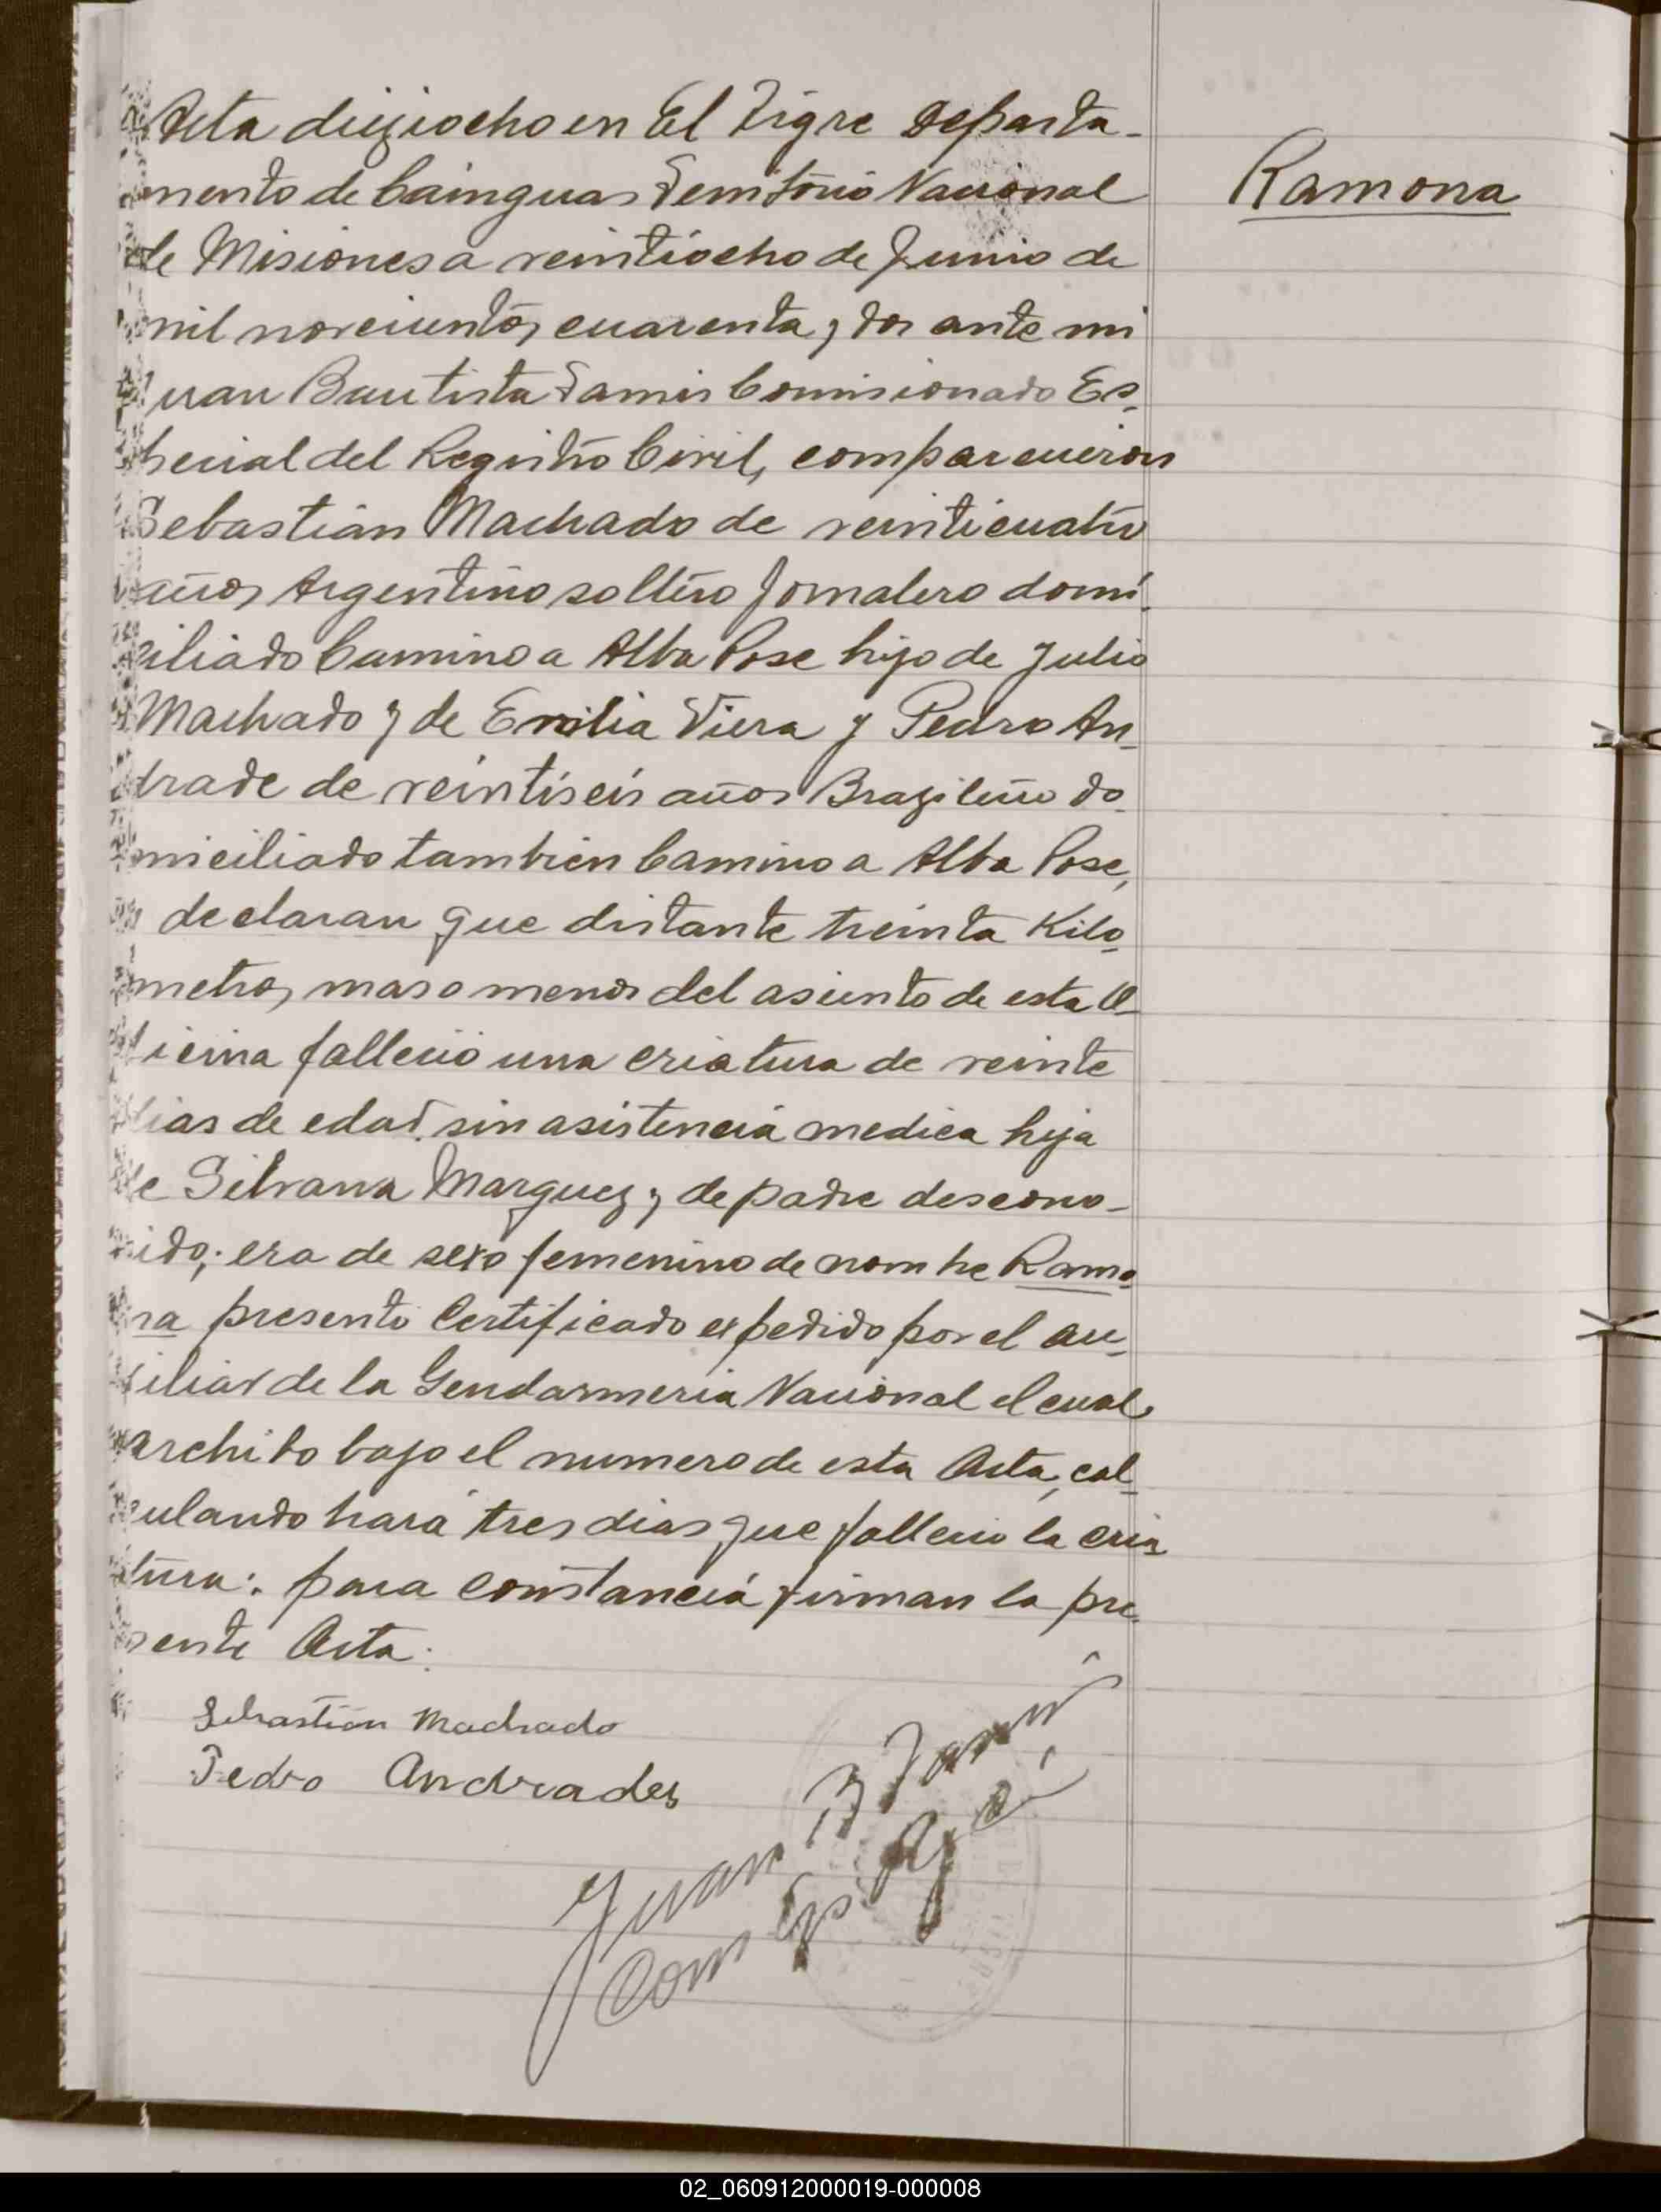 Acta dieziocho en El Tigre Departa-
mento de Cainguas Territorio Nacional
de Misiones a veintiocho de Junio de
mil novecientos cuarenta y dos ante mi
Juan Bautista Tamis Comisionado Es-
pecial del Registro Civil, comparecieron
Sebastián Machado de veinticuatro
años Argentino soltero Jornalero domi-
ciliado Camino a Alba Pose hijo de Julio
Machado y de Emilia Viera y Pedro An-
drade de veintiseis años Brazileño do-
miciliado tambien Camino a Alba Pose,
declaran que distante treinta Kilo-
metros mas o menos del asiento de esta O-
ficina fallecio una criatura de veinte
dias de edad sin asistencia medica hija
de Silvana Marquez y de padre descono-
cido; era de sexo femenino de nombre Ramo-
na presento Certificado expedido por el au-
xiliar de la Gendarmeria Nacional el cual
archibo bajo el numero de esta Acta, cal-
culando hará tres dias que fallecio la cria-
tura: para constancia firman la pre-
sente Acta.
Ramona
Sebastián Machado
Pedro Andrades
Juan B Tamis
Com Esp
02_060912000019-000008